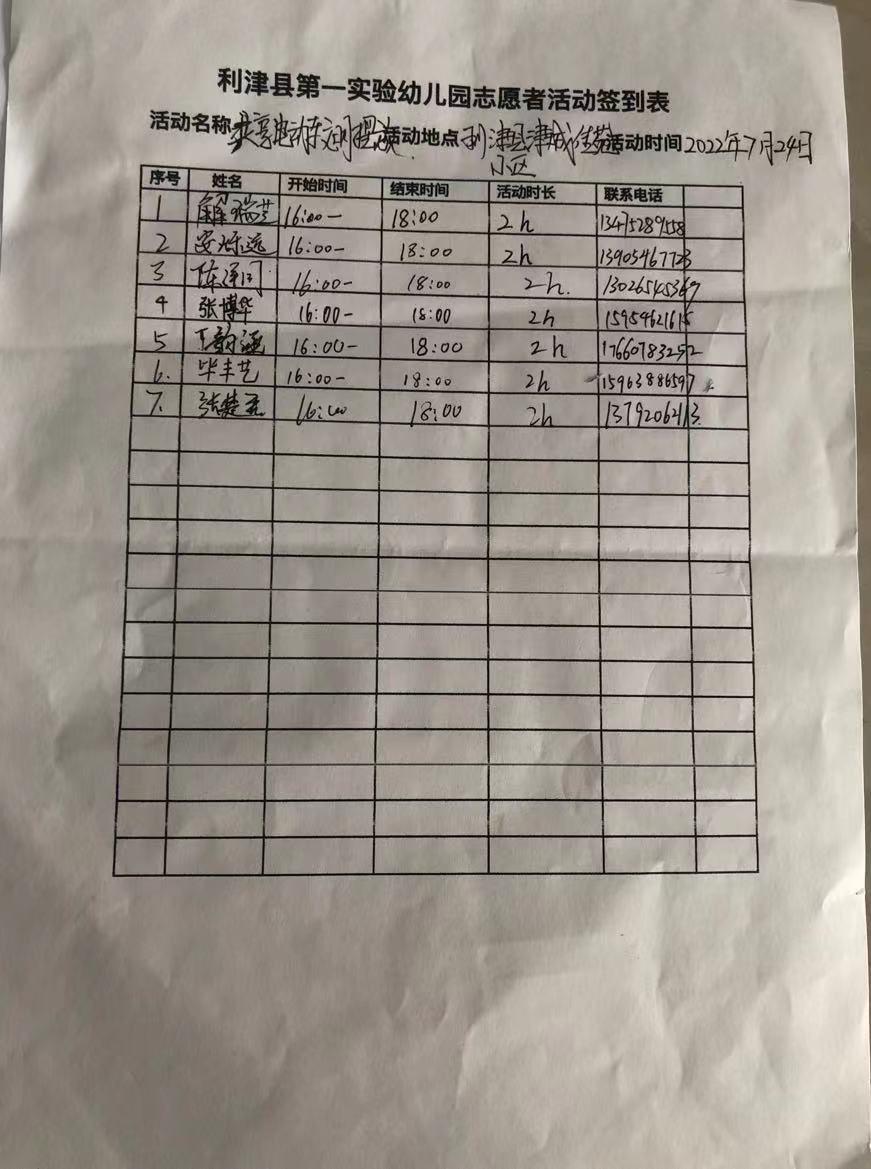 利津县第一实验幼儿园志愿者活动签到表
活动名称共享电动车文明摆放活动地点利津县津城佳苑活动时间2022年7月24日
小区
序号 姓名 开始时间 结束时间 活动时长 联系电话
1 解瑞芝 16:00- 18:00 2h 13475289558
2 安烁远 16:00- 18:00 2h 13905467723
3 陈泽 16:00- 18:00 2h. 13026545369
4 张博华 16:00- 18:00 2h 15954621615
5 16:00- 18:00 2h 17660783252
6. 毕丰艺 16:00- 18:00 2h 15963886597
7. 张楚 16:00 18:00 2h 1379206413